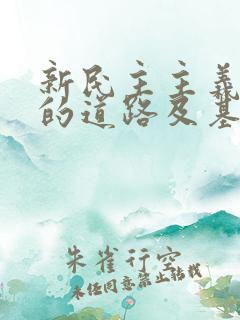 新民主主义
的道路及基
朱雀行空
未经同意禁止转载